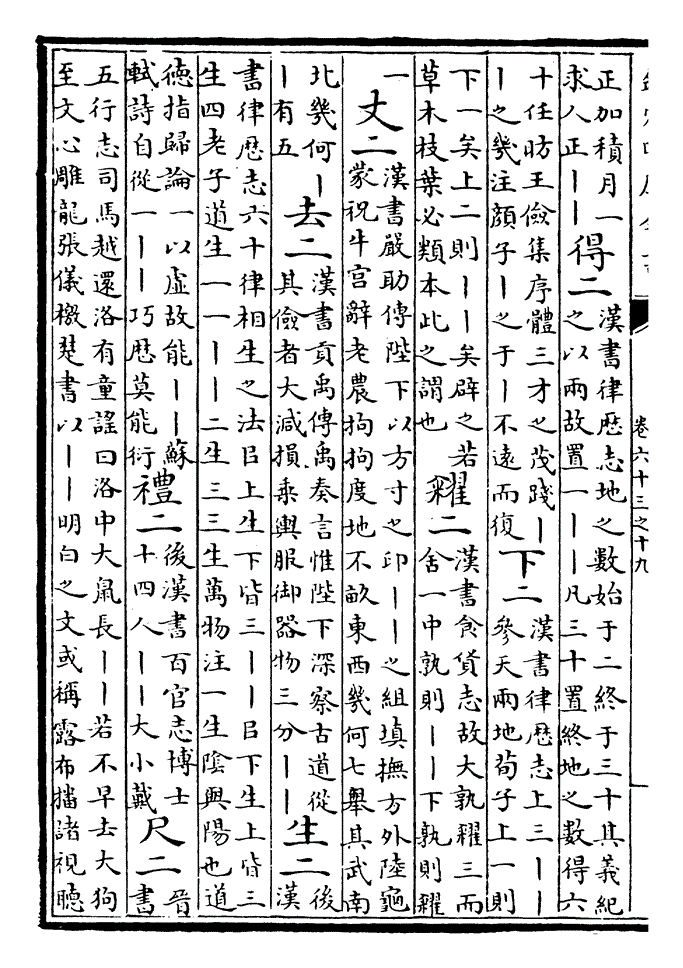 卷六十三之十九
正加積月一
求人正丨丨
得二
漢書律厯志地之數始于二終于三十其義紀
之以兩故置一丨丨凡三十置終地之數得六
十任昉王儉集序體三才之茂踐丨
丨之幾注顔子丨之于丨不遠而復
下二
漢書律厯志上三丨丨
參天兩地荀子上一則
下一矣上二則丨丨矣辟之若
草木枝葉必類本此之謂也
糴二
漢書食貨志故大孰糴三而
舍一中孰則丨丨下孰則糴
一
丈二
漢書嚴助傳陛下以方寸之印丨丨之組填撫方外陸龜
蒙祝牛宫辭老農拘拘度地不畝東西幾何七舉其武南
北幾何丨
丨有五
去二
漢書貢禹傳禹奏言惟陛下深察古道從
其儉者大減損乘輿服御器物三分丨丨
生二
後
漢
書律厯志六十律相生之法㠯上生下皆三丨丨㠯下生上皆三
生四老子道生一一丨丨二生三三生萬物注一生陰與陽也道
德指歸論一以虛故能丨丨蘇
軾詩自從一丨丨巧厯莫能衍
禮二
後漢書百官志博士
十四人丨丨大小戴
尺二
晉
書
五行志司馬越還洛有童謡曰洛中大鼠長丨丨若不早去大狗
至文心雕龍張儀檄楚書以丨丨明白之文或稱露布播諸視聽